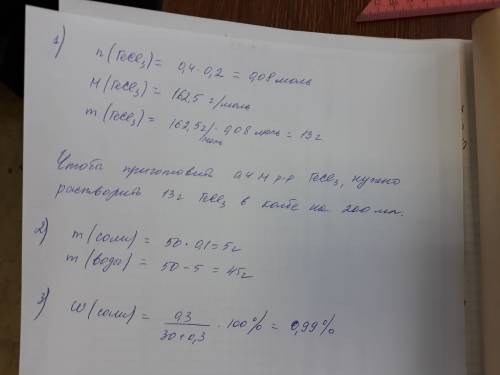 1)
n(FeCl₃) = 0,4·0,2 = 0,08 моль
M(FeCl₃) = 162,5 г/моль
m(FeCl₃) = 162,5 г/моль · 0,08 моль = 13 г
Чтобы приготовить 0,4 М р-р FeCl₃, нужно
растворить 13 г FeCl₃ в колбе на 200 мл.
2) m(соли) = 50·0,1 = 5 г
m(воды) = 50 - 5 = 45 г
3) W(соли) = 0,3 / (30+0,3) · 100% = 0,99%